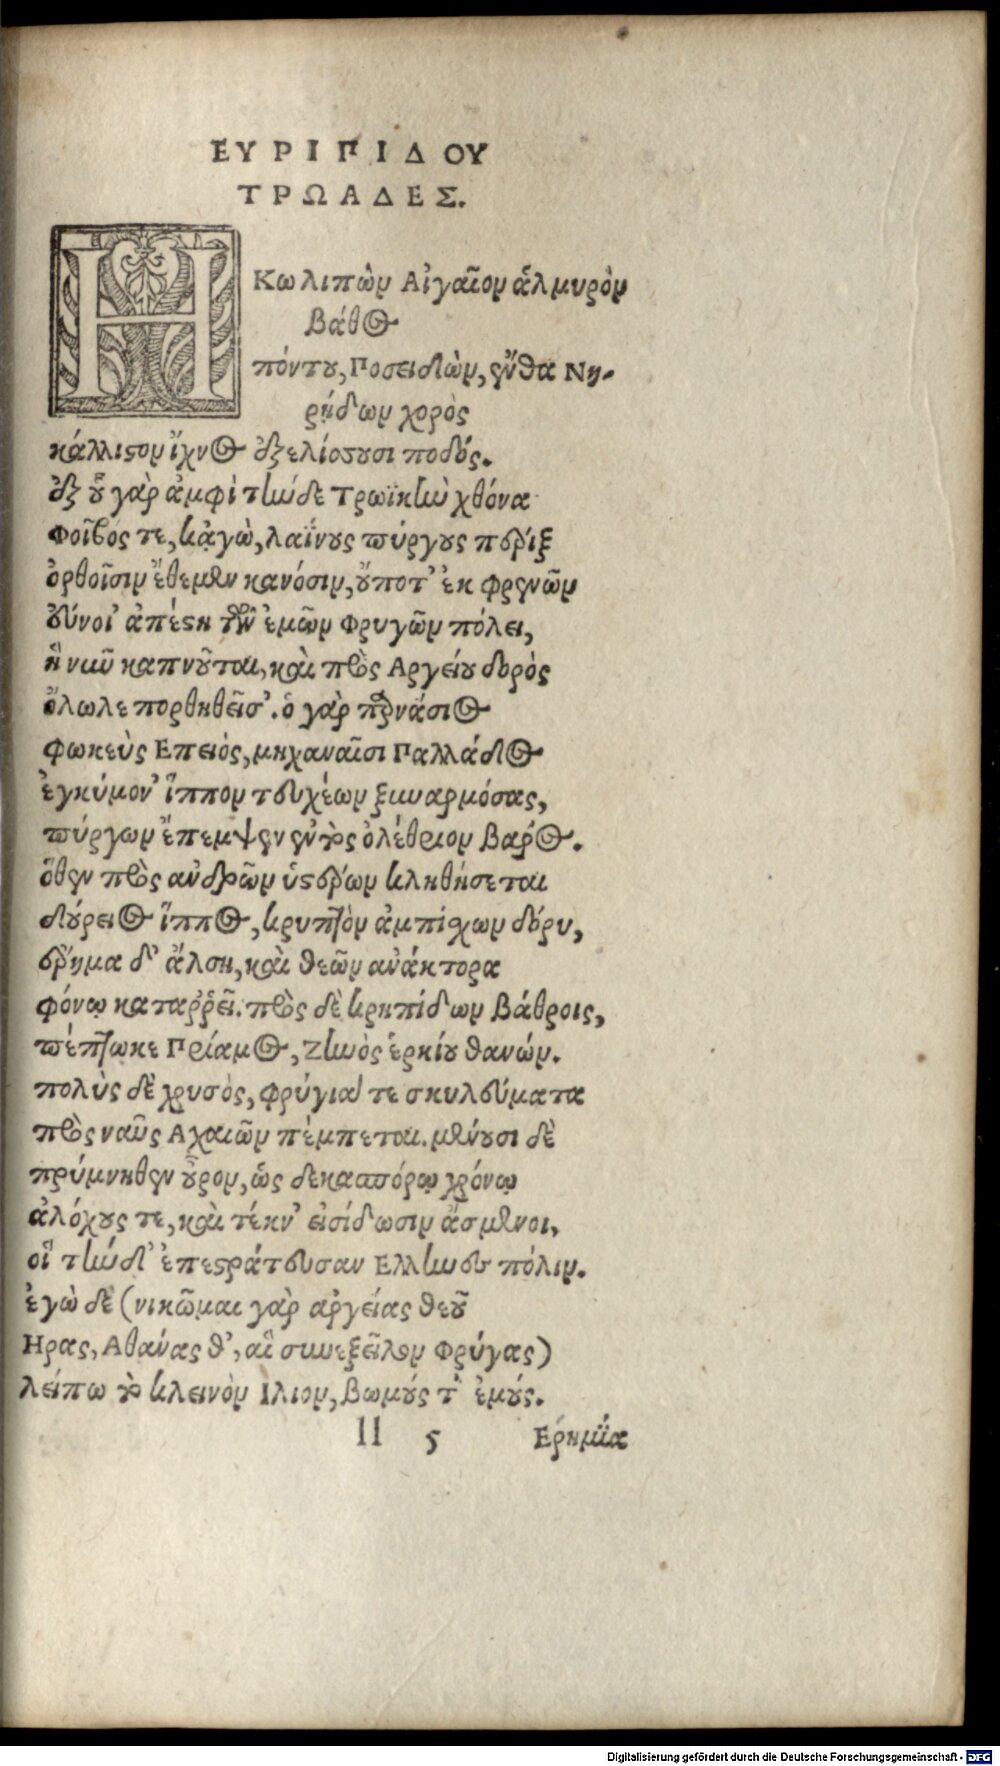 ΕΥΡΙΠΙΔΟΥ
ΤΡΩΑΔΕΣ.
ΗΚω λιπὼν Αἰγαῖον ἁλμυρὸν
βάθος
πόντου, Ποσειδὼν, ἔνθα Νη-
ρῄδων χορὸς
κάλλιστον ἴχνος ἐξελίσσουσι ποδός.
ἐξ οὗ γὰρ ἀμφὶ τήνδε Τρωϊκὴν χθόνα
Φοῖβός τε, κἀγὼ, λαΐνους πύργους πέριξ
ὀρθοῖσιν ἔθεμεν κανόσιν, οὔποτ' ἐκ φρενῶν
εὔνοι' ἀπέστη τῶν ἐμῶν Φρυγῶν πόλει,
ἣ νῦν καπνοῦται, καὶ πρὸς Αργείου δορὸς
ὄλωλε πορθηθεῖσ'. ὁ γὰρ παρνάσιος
φωκεὺς Επειὸς, μηχαναῖσι Παλλάδος
ἐγκύμον' ἵππον τευχέων ξυναρμόσας,
πύργων ἔπεμψεν ἐντὸς ὀλέθριον βάρος.
ὅθεν πρὸς ανδρῶν ὑστέρων κληθήσεται
δούρειος ἵππος, κρυπτὸν ἀμπίχων δόρυ,
ἔρημα δ' ἄλση, καὶ θεῶν ανάκτορα
φόνῳ καταῤῥεῖ. πρὸς δὲ κρηπίδων βάθροις,
πέπτωκε Πρίαμος, Ζηνὸς ἑρκίου θανών.
πολὺς δὲ χρυσὸς, φρύγιά τε σκυλεύματα
πρὸς ναῦς Αχαιῶν πέμπεται. μένουσι δὲ
πρύμνηθεν οὖρον, ὡς δεκασπόρῳ χρόνῳ
ἀλόχους τε, καὶ τέκν' εἰσίδωσιν ἄσμενοι,
οἳ τήνδ' ἐπεστράτευσαν Ελληνες πόλιν.
ἐγὼ δὲ (νικῶμαι γὰρ αργείας θεοῦ
Ηρας, Αθάνας θ', αἳ συνεξεῖλον Φρύγας)
λείπω τὸ κλεινὸν Ιλιον, βωμούς τ' ἐμούς.
ll 5 Ερημία
Digitalisierung gefördert durch die Deutsche Forschungsgemeinschaft - DFG